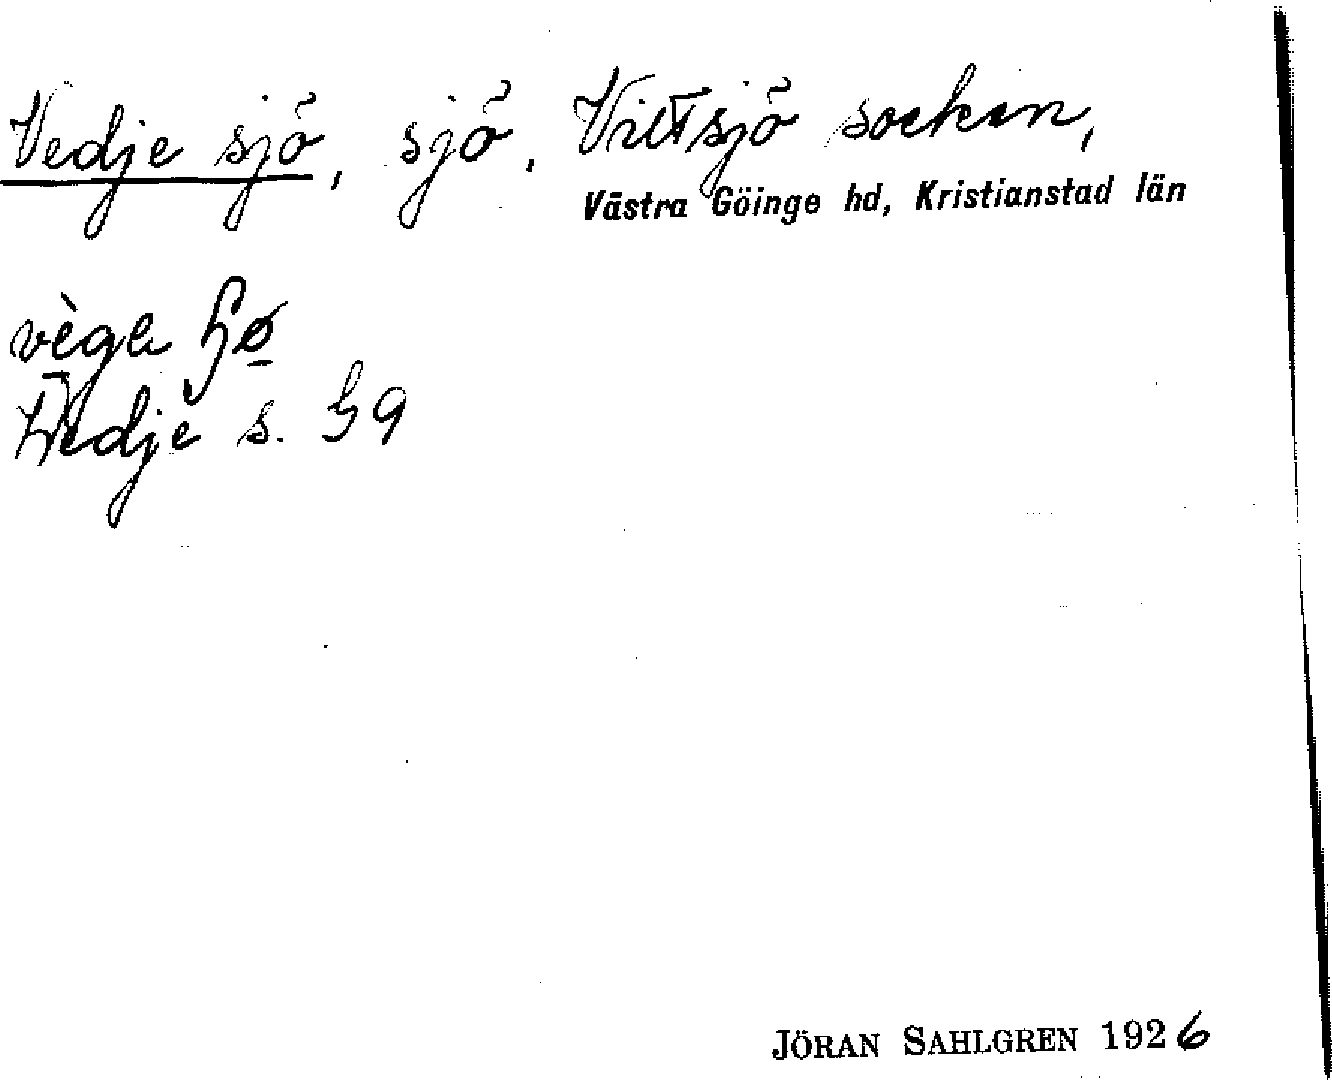 Vedje sjö, sjö. Vittsjö socken,
Västra Göinge hd, Kristianstad län
Wedje s.
JÖRAN SAHLGREN 1926